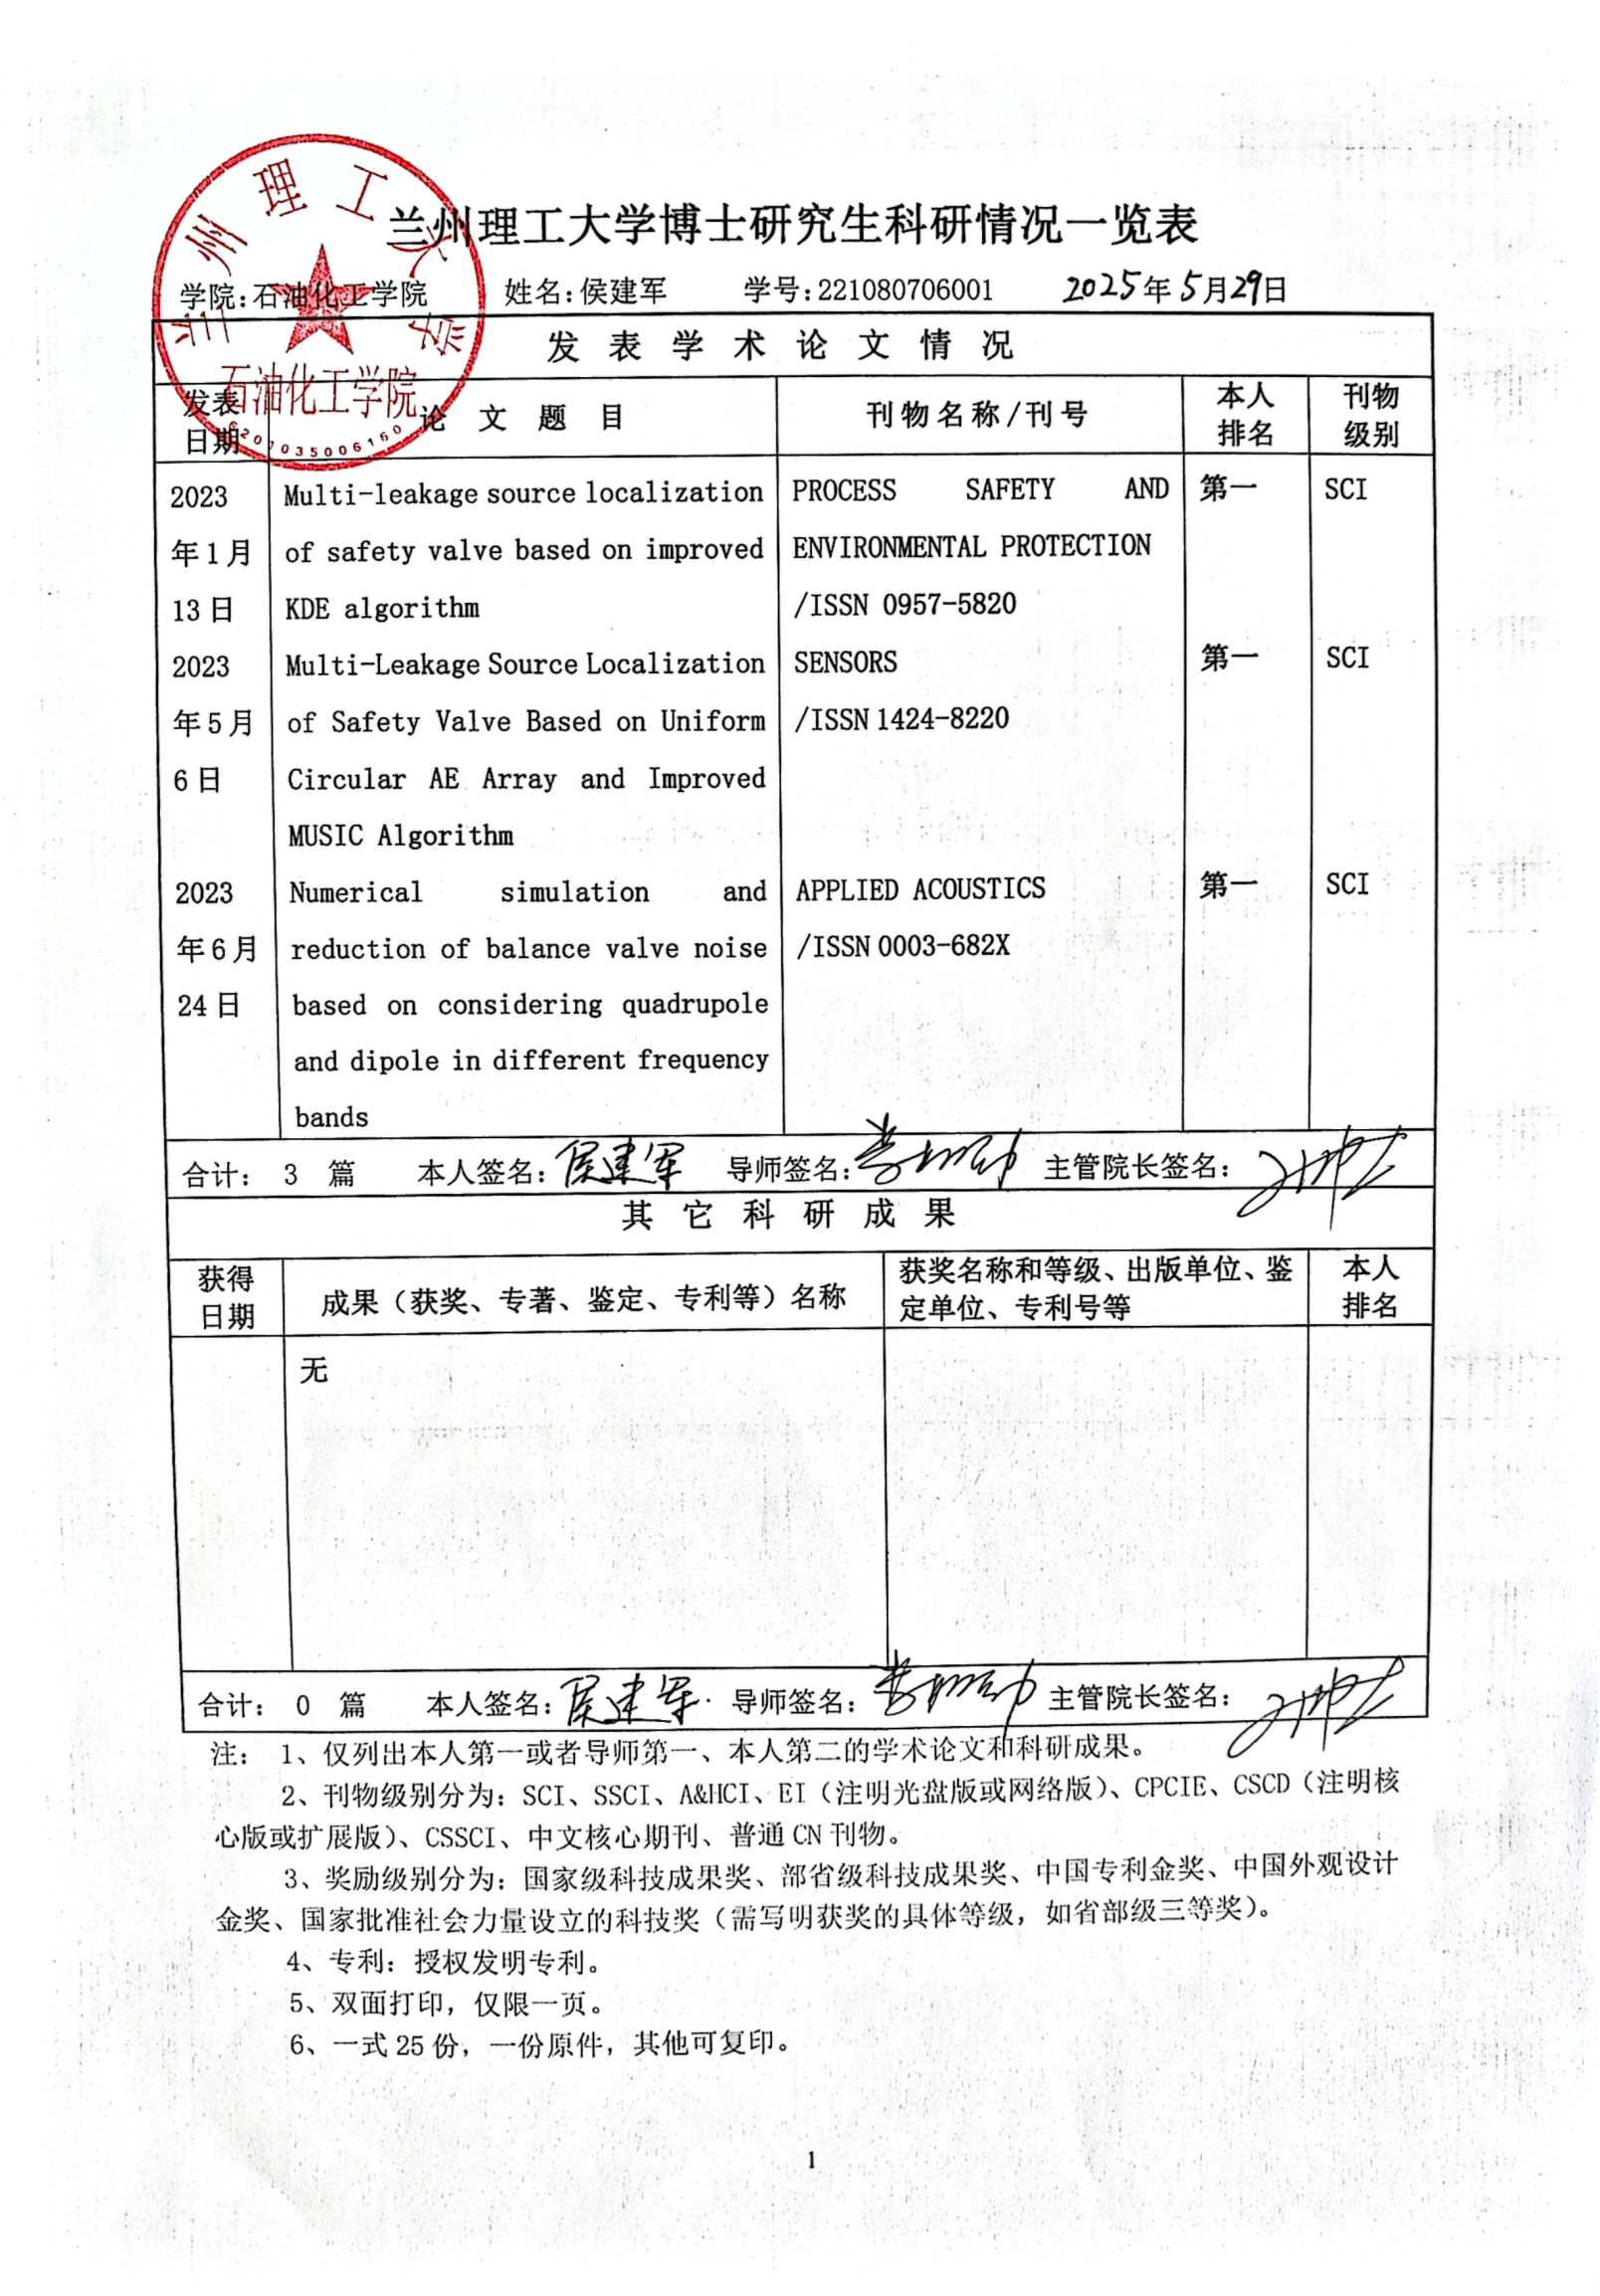 兰州理工大学博士研究生科研情况一览表
学院:石油化工学院 姓名:侯建军 学号:221080706001 2025年5月29日
兰州理工大学
石油化工学院
6201035006160
发表学术论文情况
发表日期 论文题目 刊物名称/刊号 本人排名 刊物级别
2023 Multi-leakage source localization PROCESS SAFETY AND 第一 SCI
年1月 of safety valve based on improved ENVIRONMENTAL PROTECTION
13日 KDE algorithm /ISSN 0957-5820
2023 Multi-Leakage Source Localization SENSORS 第一 SCI
年5月 of Safety Valve Based on Uniform /ISSN 1424-8220
6日 Circular AE Array and Improved
MUSIC Algorithm
2023 Numerical simulation and APPLIED ACOUSTICS 第一 SCI
年6月 reduction of balance valve noise /ISSN 0003-682X
24日 based on considering quadrupole
and dipole in different frequency
bands
合计: 3 篇 本人签名:侯建军 导师签名: 主管院长签名:
其它科研成果
获得日期 成果(获奖、专著、鉴定、专利等)名称 获奖名称和等级、出版单位、鉴定单位、专利号等 本人排名
无
合计: 0 篇 本人签名:侯建军 导师签名: 主管院长签名:
注: 1、仅列出本人第一或者导师第一、本人第二的学术论文和科研成果。
2、刊物级别分为:SCI、SSCI、A&HCI、EI(注明光盘版或网络版)、CPCIE、CSCD(注明核
心版或扩展版)、CSSCI、中文核心期刊、普通CN刊物。
3、奖励级别分为:国家级科技成果奖、部省级科技成果奖、中国专利金奖、中国外观设计
金奖、国家批准社会力量设立的科技奖(需写明获奖的具体等级,如省部级三等奖)。
4、专利:授权发明专利。
5、双面打印,仅限一页。
6、一式25份,一份原件,其他可复印。
1